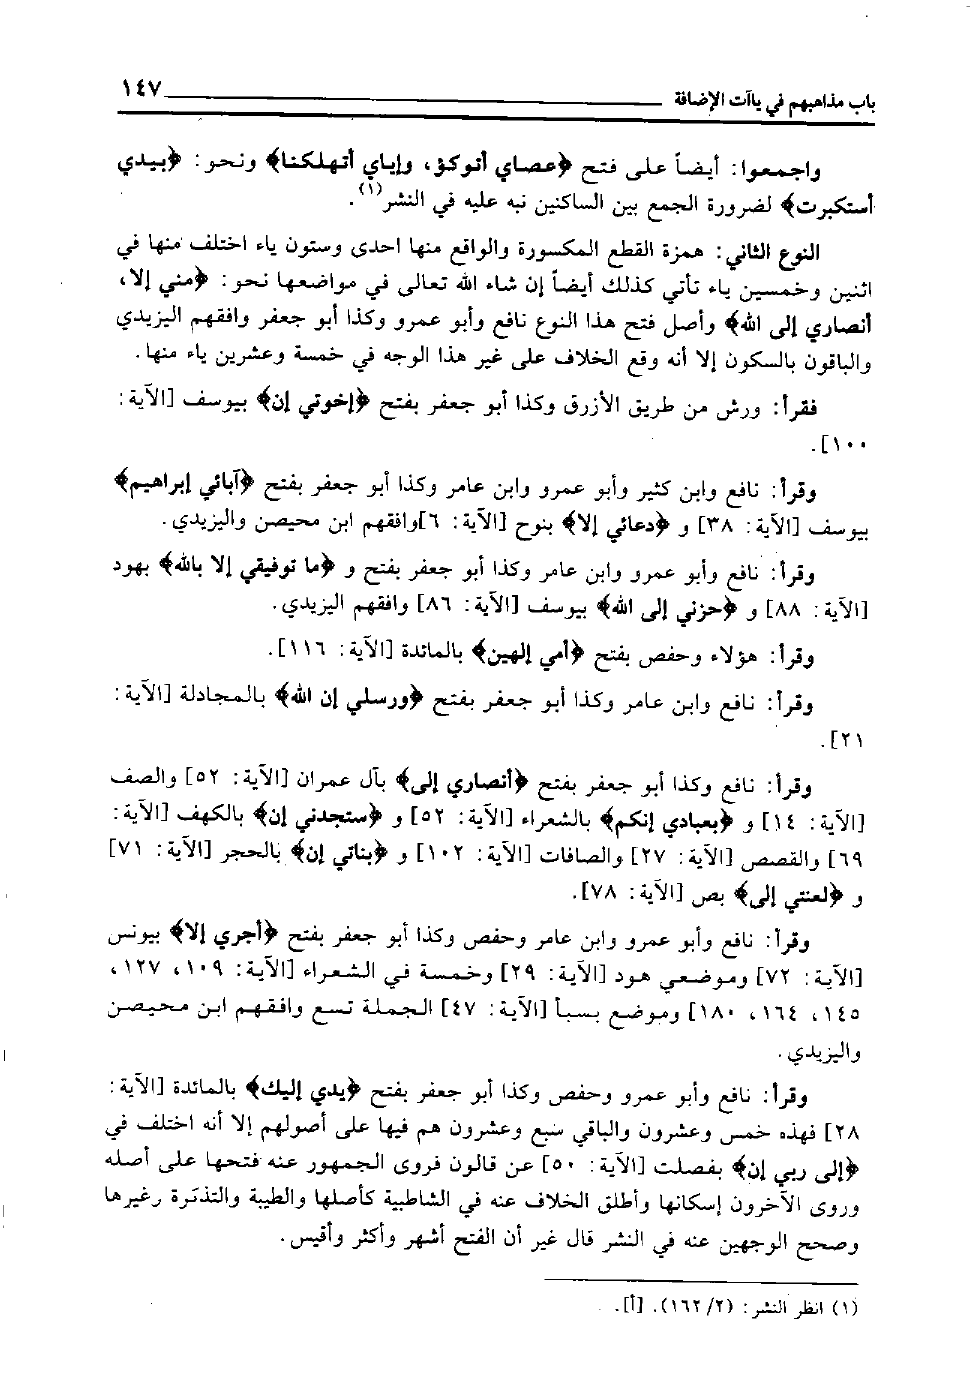 باب مذاهبهم في ياآت الإضافة ١٤٧
واجمعوا: أيضاً على فتح ﴿عصاي أتوكؤ، وإياي أتهلكنا﴾ ونحو: ﴿بيدي
أستكبرت﴾ لضرورة الجمع بين الساكنين نبه عليه في النشر(١).
النوع الثاني: همزة القطع المكسورة والواقع منها احدى وستون ياء اختلف منها في
اثنين وخمسين ياء تأتي كذلك أيضاً إن شاء الله تعالى في مواضعها نحو: ﴿مني إلا،
أنصاري إلى الله﴾ وأصل فتح هذا النوع نافع وأبو عمرو وكذا أبو جعفر وافقهم اليزيدي
والباقون بالسكون إلا أنه وقع الخلاف على غير هذا الوجه في خمسة وعشرين ياء منها.
فقرأ: ورش من طريق الأزرق وكذا أبو جعفر بفتح ﴿إخوتي إن﴾ بيوسف [الآية:
١٠٠].
وقرأ: نافع وابن كثير وأبو عمرو وابن عامر وكذا أبو جعفر بفتح ﴿آبائي إبراهيم﴾
بيوسف [الآية: ٣٨] و ﴿دعائي إلا﴾ بنوح [الآية: ٦]وافقهم ابن محيصن واليزيدي.
وقرأ: نافع وأبو عمرو وابن عامر وكذا أبو جعفر بفتح و ﴿ما توفيقي إلا بالله﴾ بهود
[الآية: ٨٨] و ﴿حزني إلى الله﴾ بيوسف [الآية: ٨٦] وافقهم اليزيدي.
وقرأ: هؤلاء وحفص بفتح ﴿أمي إلهين﴾ بالمائدة [الآية: ١١٦].
وقرأ: نافع وابن عامر وكذا أبو جعفر بفتح ﴿ورسلي إن الله﴾ بالمجادلة [الآية:
٢١].
وقرأ: نافع وكذا أبو جعفر بفتح ﴿أنصاري إلى﴾ بآل عمران [الآية: ٥٢] والصف
[الآية: ١٤] و ﴿بعبادي إنكم﴾ بالشعراء [الآية: ٥٢] و ﴿ستجدني إن﴾ بالكهف [الآية:
٦٩] والقصص [الآية: ٢٧] والصافات [الآية: ١٠٢] و ﴿بناتي إن﴾ بالحجر [الآية: ٧١]
و ﴿لعنتي إلى﴾ بص [الآية: ٧٨].
وقرأ: نافع وأبو عمرو وابن عامر وحفص وكذا أبو جعفر بفتح ﴿أجري إلا﴾ بيونس
[الآية: ٧٢] وموضعي هود [الآية: ٢٩] وخمسة في الشعراء [الآية: ١٠٩، ١٢٧،
١٤٥، ١٦٤، ١٨٠] وموضع بسبأ [الآية: ٤٧] الجملة تسع وافقهم ابن محيصن
واليزيدي.
وقرأ: نافع وأبو عمرو وحفص وكذا أبو جعفر بفتح ﴿يدي إليك﴾ بالمائدة [الآية:
٢٨] فهذه خمس وعشرون والباقي سبع وعشرون هم فيها على أصولهم إلا أنه اختلف في
﴿إلى ربي إن﴾ بفصلت [الآية: ٥٠] عن قالون فروى الجمهور عنه فتحها على أصله
وروى الآخرون إسكانها وأطلق الخلاف عنه في الشاطبية كأصلها والطيبة والتذكرة وغيرها
وصحح الوجهين عنه في النشر قال غير أن الفتح أشهر وأكثر وأقيس.
(١) انظر النشر: (١٦٢/٢). [أ].